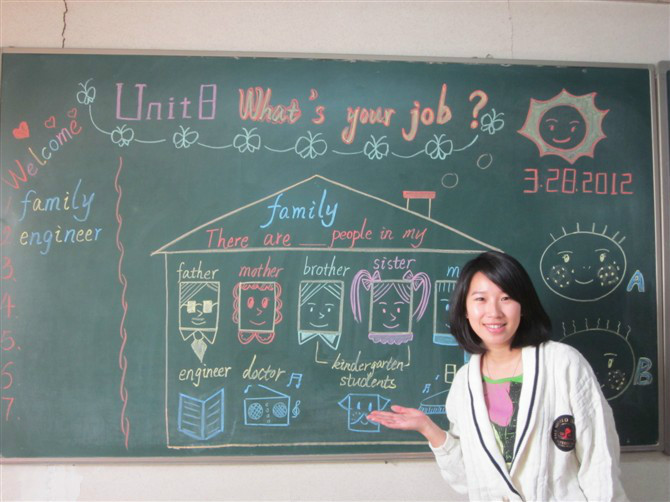 Unit 8 What's your job ?
3.28.2012
Welcome
family
engineer
2
3.
4.
5.
6
7.
family
There are ___ people in my
father mother brother sister m
engineer doctor kindergarten
students
A
B